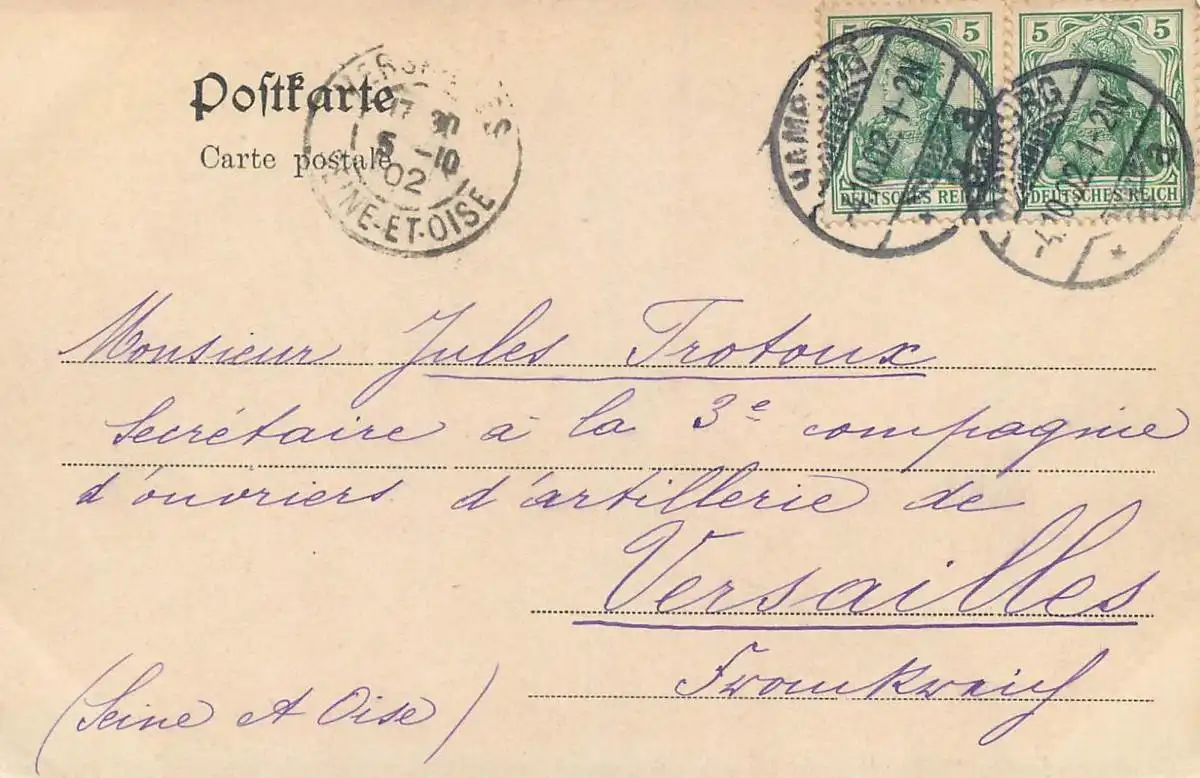 5 5 5 5
Poſtkarte
Carte postale
VERSAILLES
17 30
5 -10
02
SEINE-ET-OISE
HAMBURG
-4.10.02.1-2N
a
*
DEUTSCHES REICH
HAMBURG
-4.10.02.1-2N
a
*
DEUTSCHES REICH
Monsieur Jules Trotoux
Secrétaire à la 3e compagnie
d'ouvriers d'artillerie de
Versailles
Frankreich
(Seine et Oise)